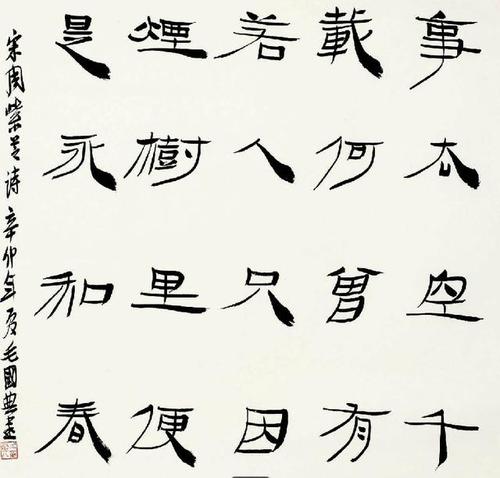 事去空千
載何曾有
若人只因
煙樹里便
是永和春
宋周紫芝诗辛卯年夏毛國典書